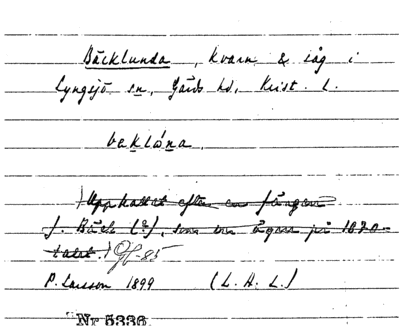 Bäcklunda, kvarn & såg i
Lyngsjö sn, Gärds hd, Krist. l.
beklona.
Uppkallat efter en
J. Bäck (?), som var ägare på 1820-
talet.)
P. Larsson 1899 (L. H. L.)
Nr 5336.